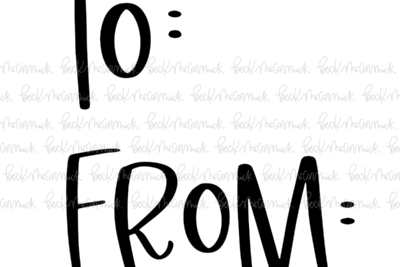 To:
FROM: